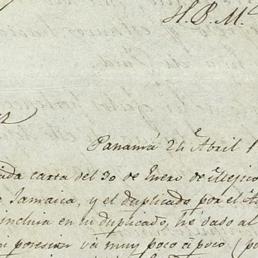 H. P. M.
Panamá 24 Abril 1
ada carta del 30 de Enero de Mejico
Jamaica, y el duplicado por el
incluia en tu duplicado, he dado al
va muy poco á poco (po